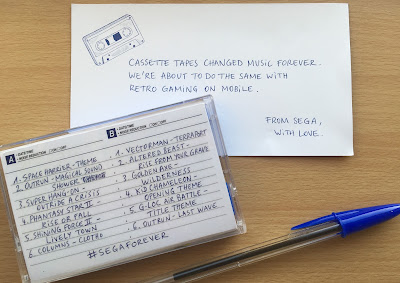 CASSETTE TAPES CHANGED MUSIC FOREVER.
WE'RE ABOUT TO DO THE SAME WITH
RETRO GAMING ON MOBILE.
FROM SEGA,
WITH LOVE.
A DATE/TIME
NOISE REDUCTION
1. SPACE HARRIER - THEME
2. OUTRUN - MAGICAL SOUND
SHOWER
3. SUPER HANG-ON -
OUTRIDE A CRISIS
4. PHANTASY STAR II -
RISE OR FALL
5. SHINING FORCE II -
LIVELY TOWN
6. COLUMNS - CLOTHO
B DATE/TIME
NOISE REDUCTION
1. VECTORMAN - TERRAPORT
2. ALTERED BEAST -
RISE FROM YOUR GRAVE
3. GOLDEN AXE -
WILDERNESS
4. KID CHAMELEON -
OPENING THEME
5. G-LOC AIR BATTLE -
TITLE THEME
6. OUTRUN - LAST WAVE
#SEGAFOREVER